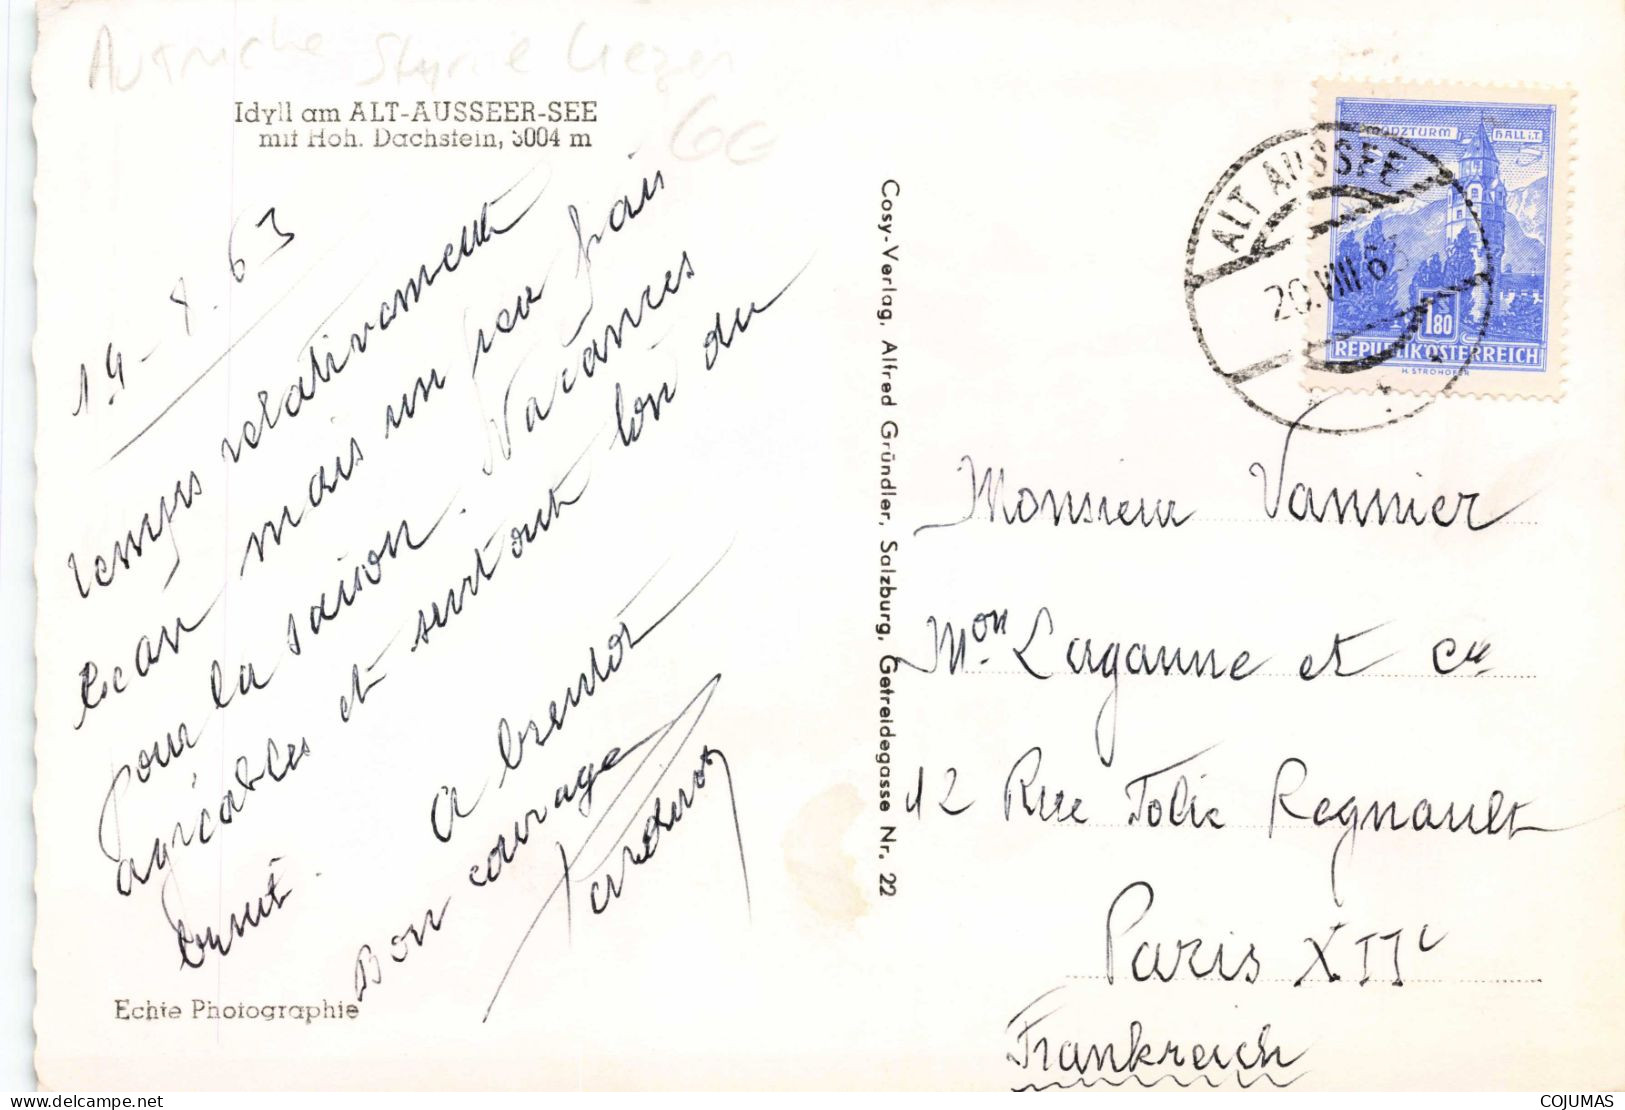 Autriche Styrie Liezen
Idyll am ALT-AUSSEER-SEE
mit Hoh. Dachstein, 3004 m
19-8.63
Temps relativement
beau mais un peu frais
pour la saison. Vacances
agréables et surtout loin du
bruit.
A bientôt
Bon courage
Echte Photographie
Cosy-Verlag, Alfred Gründler, Salzburg, Getreidegasse Nr. 22
MÜNZTURM HALL i.T.
1.80
REPUBLIK ÖSTERREICH
H. STROHOFER
ALT AUSSEE
20.VIII.63
Monsieur Vannier
Mon Laganne et Cie
12 Rue Jolie Regnault
Paris XIIe
Frankreich
COJUMAS